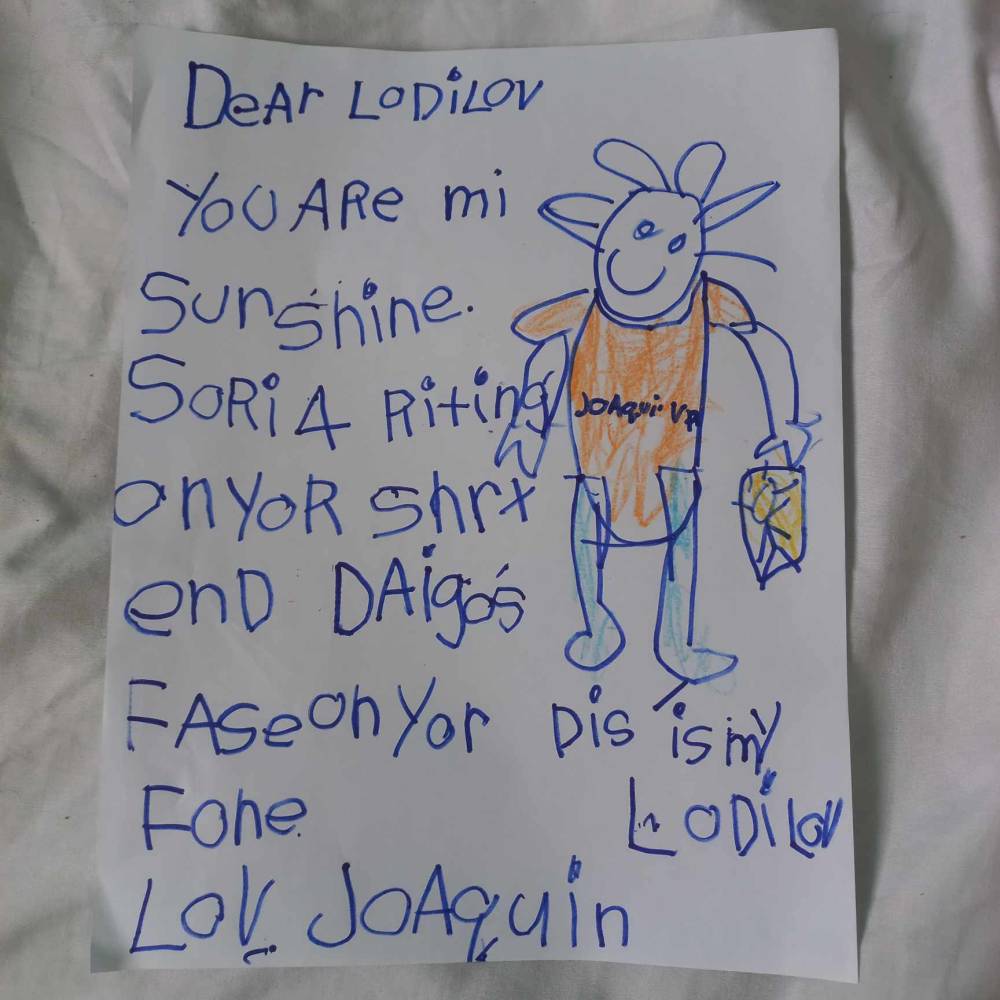 DeAr LODiLOV
YOU ARe mi
Sunshine.
SORi 4 Riting
on YoR Shrt
enD DAigos
FASe on Yor
Fone
LOV JOAquin
JOAqui
Dis is my
LODiLOV